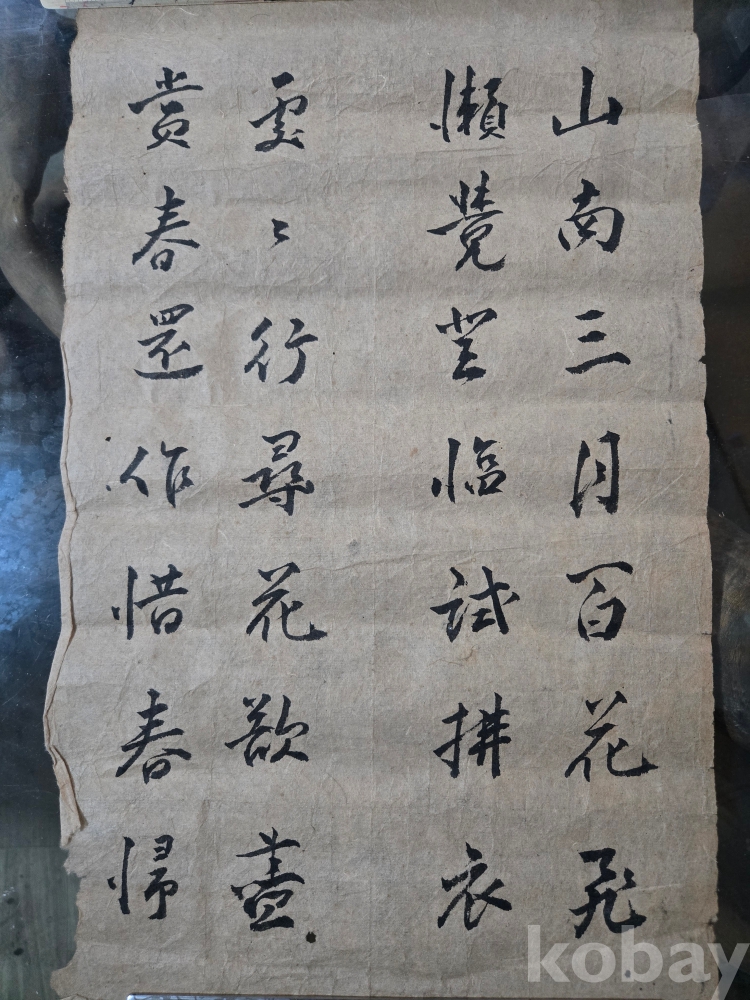 山南三月百花飛
懶覺登臨試拂衣
處〻行尋花欲盡
賞春還作惜春歸
kobay